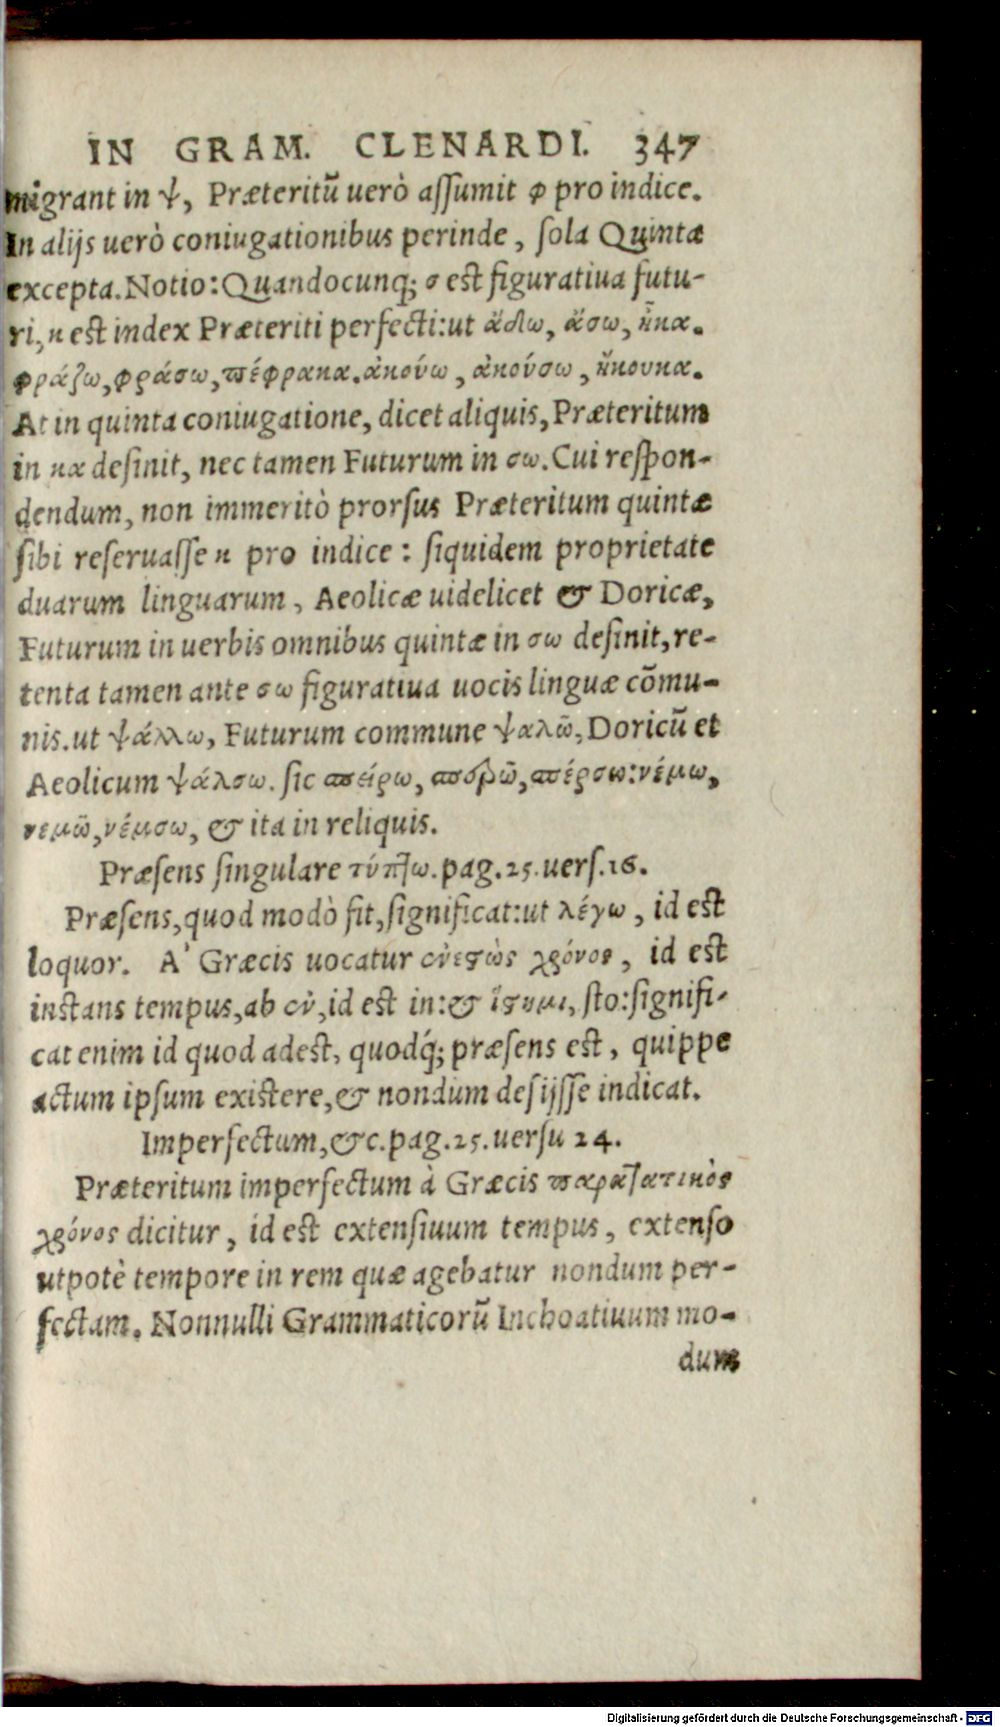 IN GRAM. CLENARDI. 347
migrant in ψ, Præteritū uerò aſſumit φ pro indice.
In alijs uerò coniugationibus perinde, ſola Quintæ
excepta. Notio: Quandocunq; σ eſt figuratiua futu-
ri, κ eſt index Præteriti perfecti: ut ἄδω, ἄσω, ἦκα.
φράζω, φράσω, πέφρακα. ἀκούω, ἀκούσω, ἤκουκα.
At in quinta coniugatione, dicet aliquis, Præteritum
in κα deſinit, nec tamen Futurum in σω. Cui reſpon-
dendum, non immeritò prorſus Præteritum quintæ
ſibi reſeruaſſe κ pro indice: ſiquidem proprietate
duarum linguarum, Aeolicæ uidelicet & Doricæ,
Futurum in uerbis omnibus quintæ in σω deſinit, re-
tenta tamen ante σω figuratiua uocis linguæ cōmu-
nis. ut ψάλλω, Futurum commune ψαλῶ, Doricū et
Aeolicum ψάλσω. ſic σπείρω, σπερῶ, σπέρσω: νέμω,
νεμῶ, νέμσω, & ita in reliquis.
Præſens ſingulare τύπτω. pag. 25. uerſ. 16.
Præſens, quod modò fit, ſignificat: ut λέγω, id eſt
loquor. A' Græcis uocatur ἐνεστὼς χρόνος, id eſt
inſtans tempus, ab ἐν, id eſt in: & ἵστημι, ſto: ſignifi-
cat enim id quod adeſt, quodq́; præſens eſt, quippe
actum ipſum exiſtere, & nondum deſijſſe indicat.
Imperfectum, &c. pag. 25. uerſu 24.
Præteritum imperfectum à Græcis παρατατικὸς
χρόνος dicitur, id eſt extenſiuum tempus, extenſo
utpotè tempore in rem quæ agebatur nondum per-
fectam. Nonnulli Grammaticorū Inchoatiuum mo-
dum
Digitalisierung gefördert durch die Deutsche Forschungsgemeinschaft - DFG